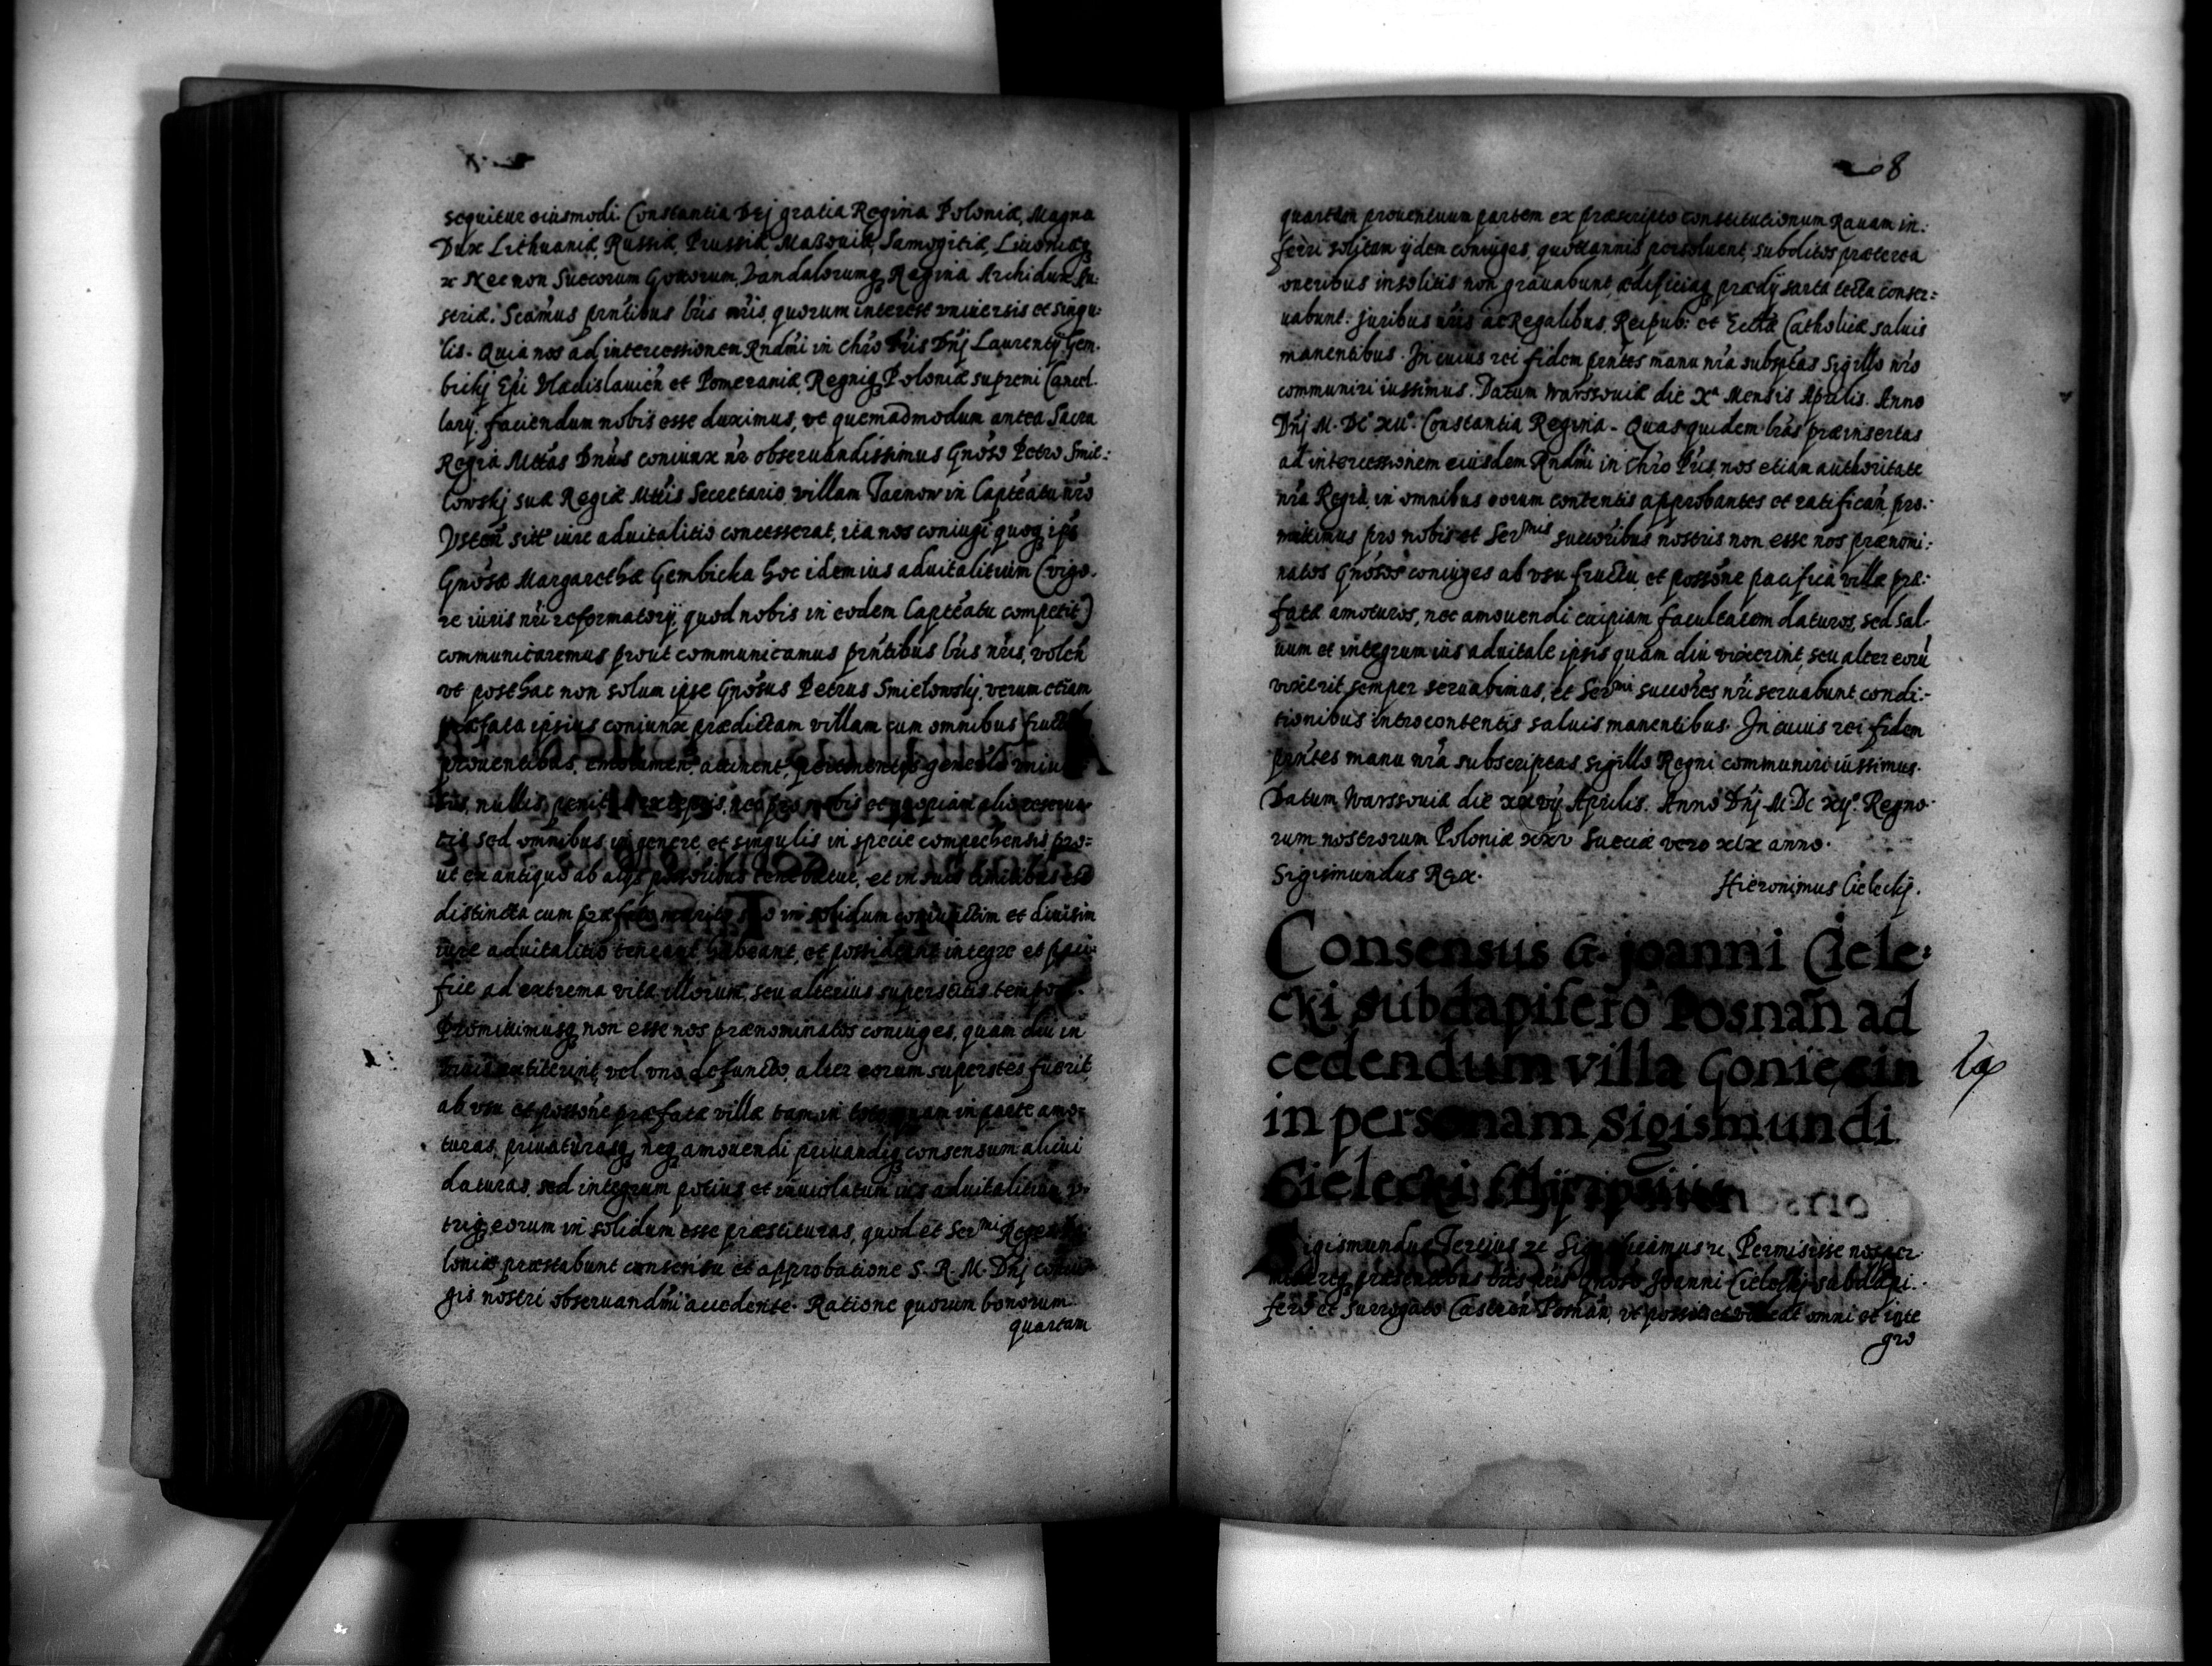 sequitur eiusmodi. Constantia Dej gratia Regina Poloniæ, Magna
Dux Lithuaniæ, Russiæ, Prussiæ, Masouiæ, Samogitiæ, Liuoniæq
Nec non Suecorum Gottorum, Vandalorumq Regina Archidux Au:
striæ. Scimus pntibus lris nris, quorum interest vniuersis et singu:
lis. Quia nos ad intercessionem Rndmi in chro Pris Dnj Laurentij Gem.
bickj Epi Vladislauien et Pomeraniæ, Regniq Poloniæ supremi Cancel.
larij, faciendum nobis esse duximus, vt quemadmodum antea Sacra
Regia Mttas Dnus coniunx nr obseruandissimus Gnoso Petro Smie:
lowskj suæ Regiæ Mttis Secretario, villam Tarnow in Capteatu nro
Vsten sitt iure aduitalitio concesserat, ita nos coniugi quoq ips
Gnosæ Margarethæ Gembicka hoc idem ius aduitalitium (vigo.
re iuris nri reformatorij, quod nobis in eodem Capteatu competit)
communicaremus prout communicamus pntibus lris nris, volen
vt posthac non solum ipse Gnosus Petrus Smielowskj, verum etiam
præfata ipsius coniunx prædictam villam cum omnibus
prouentibus,
nullis,
tis sed omnibus in genere et singulis in specie comprehensis pro:
ut ex antiquo ab alijs et in suis limitibus est
distincta cum in solidum coniunctim et diuisim
iure aduitalitio teneant habeant, et possideant integre et paci:
fice ad extrema vitæ illorum, seu alterius superstitis tempora.
Promittimusq non esse nos prænominatos coniuges, quam diu in
vel vno defuncto, alter eorum superstes fuerit,
ab vsu et possone præfatæ villæ tam in toto quam in parte amo:
turas, priuaturasq, neq amouendi priuandiq consensum alicui
daturas, sed integrum potius et inuiolatum ius aduitalitium v:
triq eorum in solidum esse præstituras, quod et Sermi
loniæ præstabunt consensu et approbatione S. R. M. Dnj coniu
gis nostri obseruandmi accedente. Ratione quorum bonorum
quartam
8
quartam prouentuum partem ex præscripto constitutionum Rauam in:
ferri solitam ijdem coniuges, quottannis persoluent, subditos præterea
oneribus insolitis non grauabunt, ædificiaq prædij sarta tecta conser:
uabunt. Juribus nris ac Regalibus, Reipub: et Ecclæ Catholicæ saluis
manentibus. In cuius rei fidem pntes manu nra subsptas Sigillo nro
communiri iussimus. Datum Warssouiæ die Xa Mensis Aprilis. Anno
Dnj M. Dc XII°. Constantia Regina. Quas quidem lras præinsertas
ad intercessionem eiusdem Rndmi in chro Pris, nos etiam authoritate
nra Regia, in omnibus eorum contentis approbantes et ratifican, pro:
mittimus pro nobis et Sermis succoribus nostris non esse nos prænomi:
natos Gnosos coniuges ab vsu fructu, et possone pacifica villæ præ:
fatæ amoturos, nec amouendi cuipiam facultatem daturos, sed sal.
uum et integrum ius aduitale ipsis quam diu vixerint, seu alter eoru
vixerit semper seruabimus, et Sermi succores nri seruabunt, condi:
tionibus introcontentis saluis manentibus. In cuius rei fidem
pntes manu nra subscriptas, sigillo Regni communiri iussimus.
Datum Warssouiæ die xxvij Aprilis. Anno Dnj M. Dc xij°. Regno.
rum nostrorum Poloniæ xxv Sueciæ vero xlx anno.
Sigismundus Rex. Hieronimus Cieleckj.
Consensus G. Joanni Ciele:
cki subdapifero Posnan ad
cedendum villa Goniczin
in personam Sigismundi
Cielecki filij ipsius
Sigismundus Tertius Permisisse nos per
præsentibus lris nris Gnoso Joanni Cieleckj subdapi.
fero et Surrogato Castren Posnan, vt omni et inte
gro